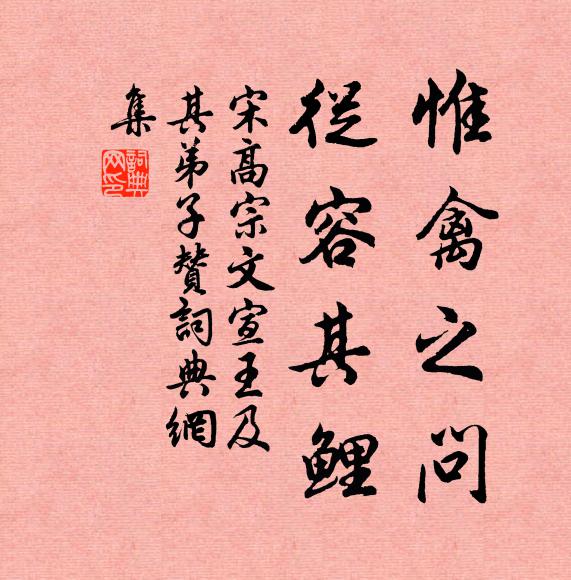 惟禽之問
從容其鯉
宋高宗文宣王及
其弟子贊詞典網
集
詞典网印